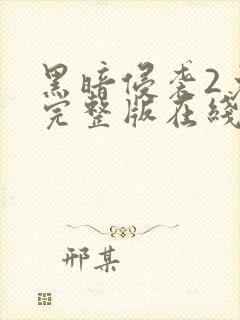 黑暗侵袭2
完整版在线
邢某